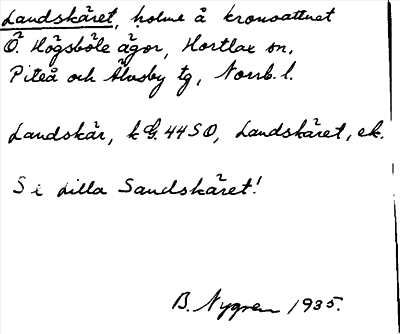 Landskäret, holme å kronoallmet
Ö. Högsböle ägor, Hortlax sn,
Piteå och Älvsby tg, Norrb. l.
Landskär, k G. 44 SO, Landskäret, ek.
Se Lilla Sandskäret!
B. Nygren 1935.